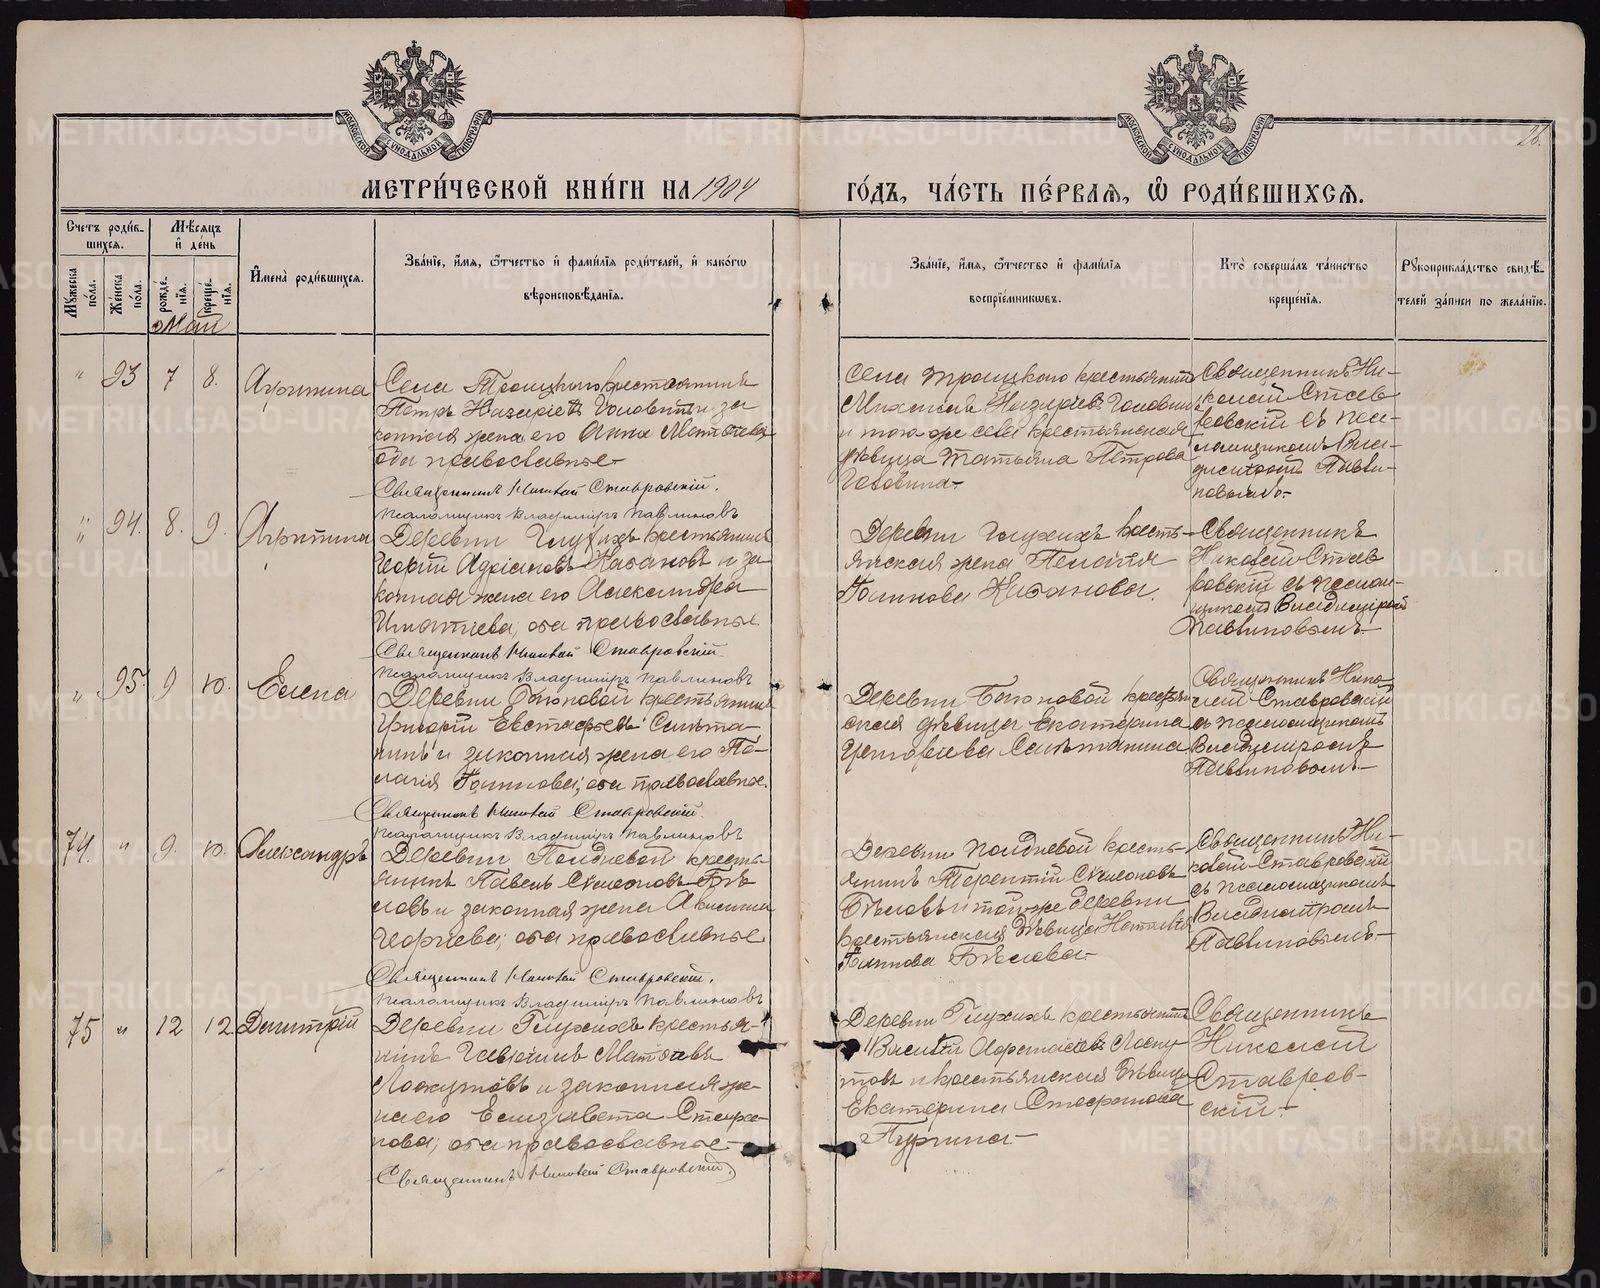 МЕТРИ́ЧЕСКОЙ КНИ́ГИ НА 1904
ГО́ДЪ, ЧА́СТЬ ПЕ́РВАѦ, Ѡ РОДИ́ВШИХСѦ.
26.
Счетъ роди́вшихся.
Мѣ́сяцъ и де́нь
Имена̀ роди́вшихся.
Зва́нїе, и́мя, ѻ́тчество и фами́лїя роди́телей, и како́гѡ вѣроисповѣ́данїя.
Мꙋ́жеска по́ла.
Же́нска по́ла.
рожде́нїя.
креще́нїя.
Май
Зва́нїе, и́мя, ѻ́тчество и фами́лїя воспрїе́мникѡвъ.
Кто̀ соверша́лъ та́инство креще́нїя.
Рꙋкоприкла́дство свидѣ́телей за́писи по жела́нїю.
" 93 7 8. Агрипина
Села Троицкаго крестьянинъ
Петръ Назаріевъ Головинъ и за
конная жена его Анна Матѳеева
оба православные
Священникъ Николай Ставровскій.
Псаломщикъ Владиміръ Павлиновъ
Села Троицкаго крестьянинъ
Михаилъ Назаріевъ Головинъ
и того же села крестьянская
дѣвица Татьяна Петрова
Головина
Священникъ Ни-
колай Став
ровскій съ пса-
ломщикомъ Вла-
диміромъ Павли-
новымъ
" 94. 8. 9. Агрипина
Деревни Глухихъ крестьянинъ
Георгій Адріановъ Кабановъ и за
конная жена его Александра
Игнатіева, оба православные
Священникъ Николай Ставровскій.
Псаломщикъ Владиміръ Павлиновъ
Деревни Глухихъ кресть-
янская жена Пелагія
Кабанова.
Священникъ
Николай Став
ровскій съ псалом-
щикомъ Владиміромъ
Павлиновымъ
" 95. 9 10. Елена
Деревни крестьянинъ
Григорій Евстафьевъ
нинъ и законная жена его Пе-
лагія оба православные.
Священникъ Николай Ставровскій.
Псаломщикъ Владиміръ Павлиновъ
Деревни крестьян
ская дѣвица Екатерина
Григорьева
Священникъ Нико
лай Ставровскій
съ псаломщикомъ
Владиміромъ
Павлиновымъ
74. " 9. 10. Александръ
Деревни Полдневой кресть-
янинъ Павелъ Симеоновъ Бѣ
ловъ и законная жена
Георгіева; оба православные
Священникъ Николай Ставровскій.
Псаломщикъ Владиміръ Павлиновъ
Деревни Полдневой кресть-
янинъ Терентій Симеоновъ
Бѣловъ и той же деревни
крестьянская дѣвица Наталья
Бѣлова
Священникъ Ни-
колай Ставровскій
съ псаломщикомъ
Владиміромъ
Павлиновымъ.
75 " 12 12 Димитрій
Деревни Глухихъ крестья-
нинъ Гавріилъ Матѳеевъ
Лоскутовъ и законная же-
на его Елизавета Стефа-
нова, оба православные
Священникъ Николай Ставровскій
Деревни Глухихъ крестьянинъ
Василій Лоску
товъ и крестьянская дѣвица
Екатерина Стефанова
Священникъ
Николай
Ставров-
скій.
METRIKI.GASO-URAL.RU